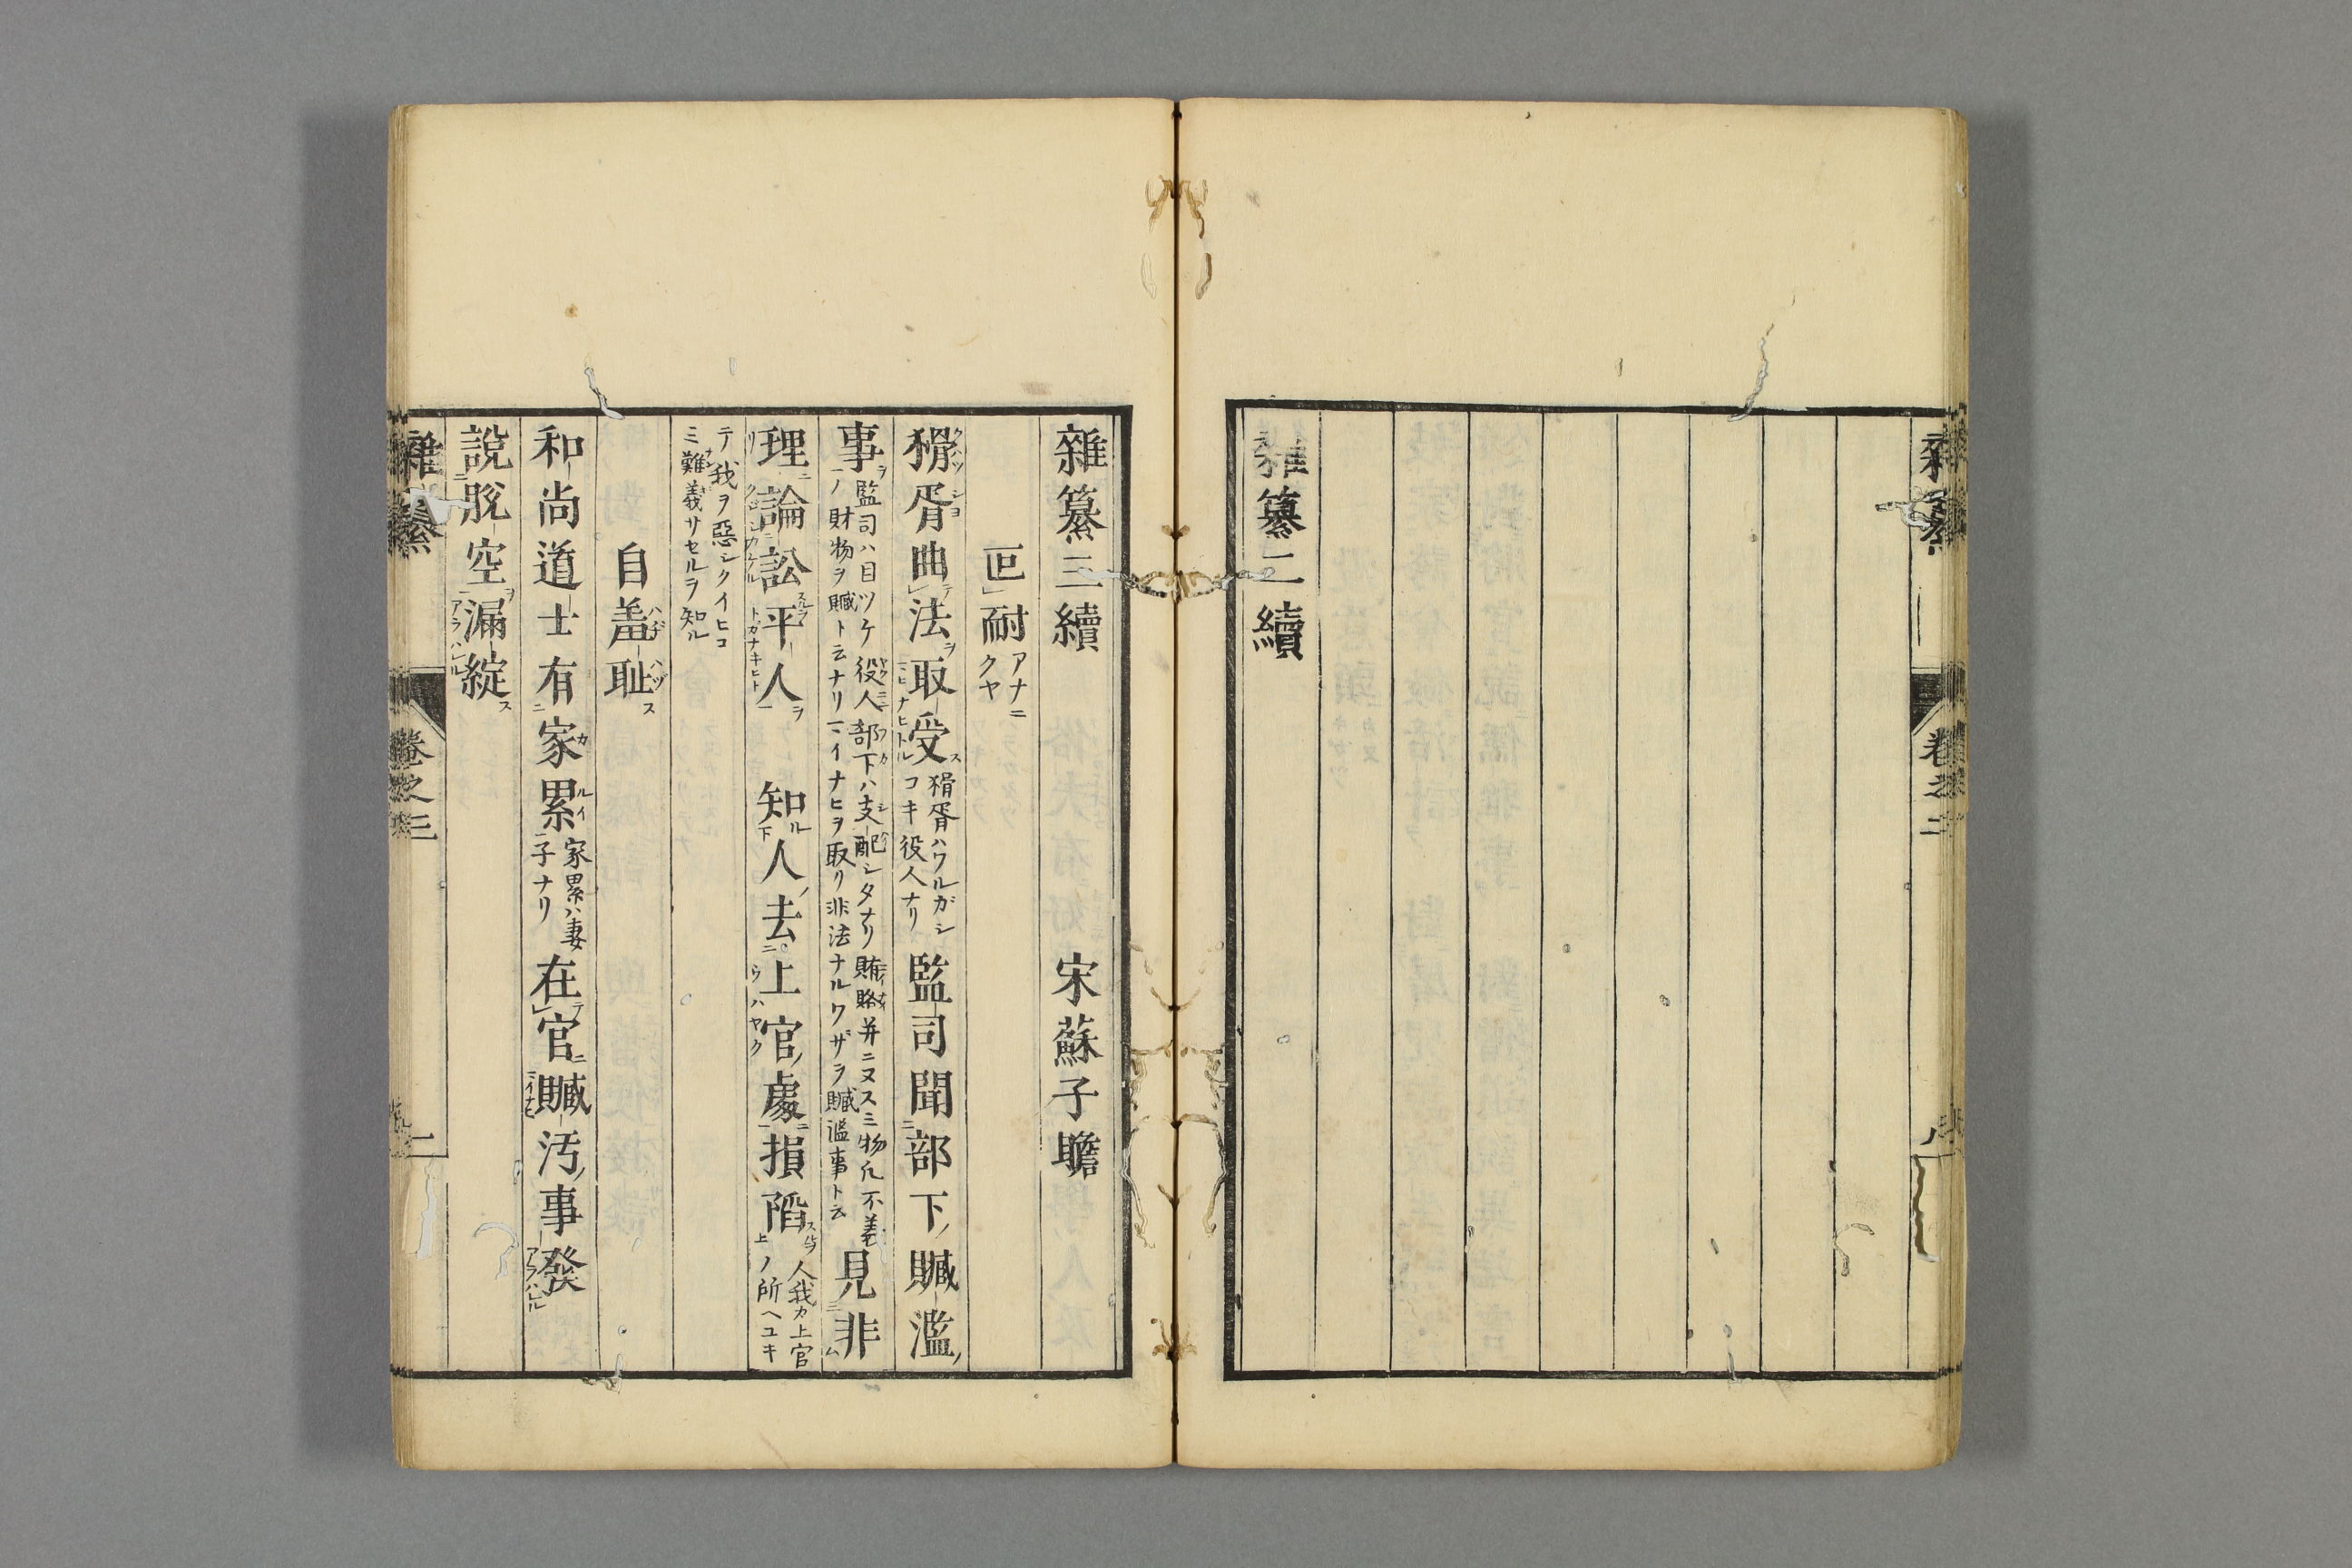 雜纂二續
雜纂三續　宋蘇子瞻
叵耐 アナニクヤ
猾胥曲法取受 猾胥ハワルガシコキ役人ナリ 監司聞部下贓濫
事 監司ハ目ツケ役人部下ハ支配シタナリ賄賂并ニヌスミ物凡不義ノ財物ヲ贓ト云ナリマイナヒヲ取リ非法ナルワザヲ贓濫事ト云 見非
理論訟平人　知人去上官處損陷 人我カ上官ノ所ヘユキ
テ我ヲ惡シクイヒコミ難義サセルヲ知ル
自羞耻
和尚道士有家累 家累ハ妻子ナリ 在官贓汚事發
說脫空漏綻
雜纂
卷之三
二